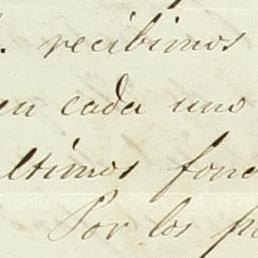 . recibimos
en cada uno
ltimos fon
Por los